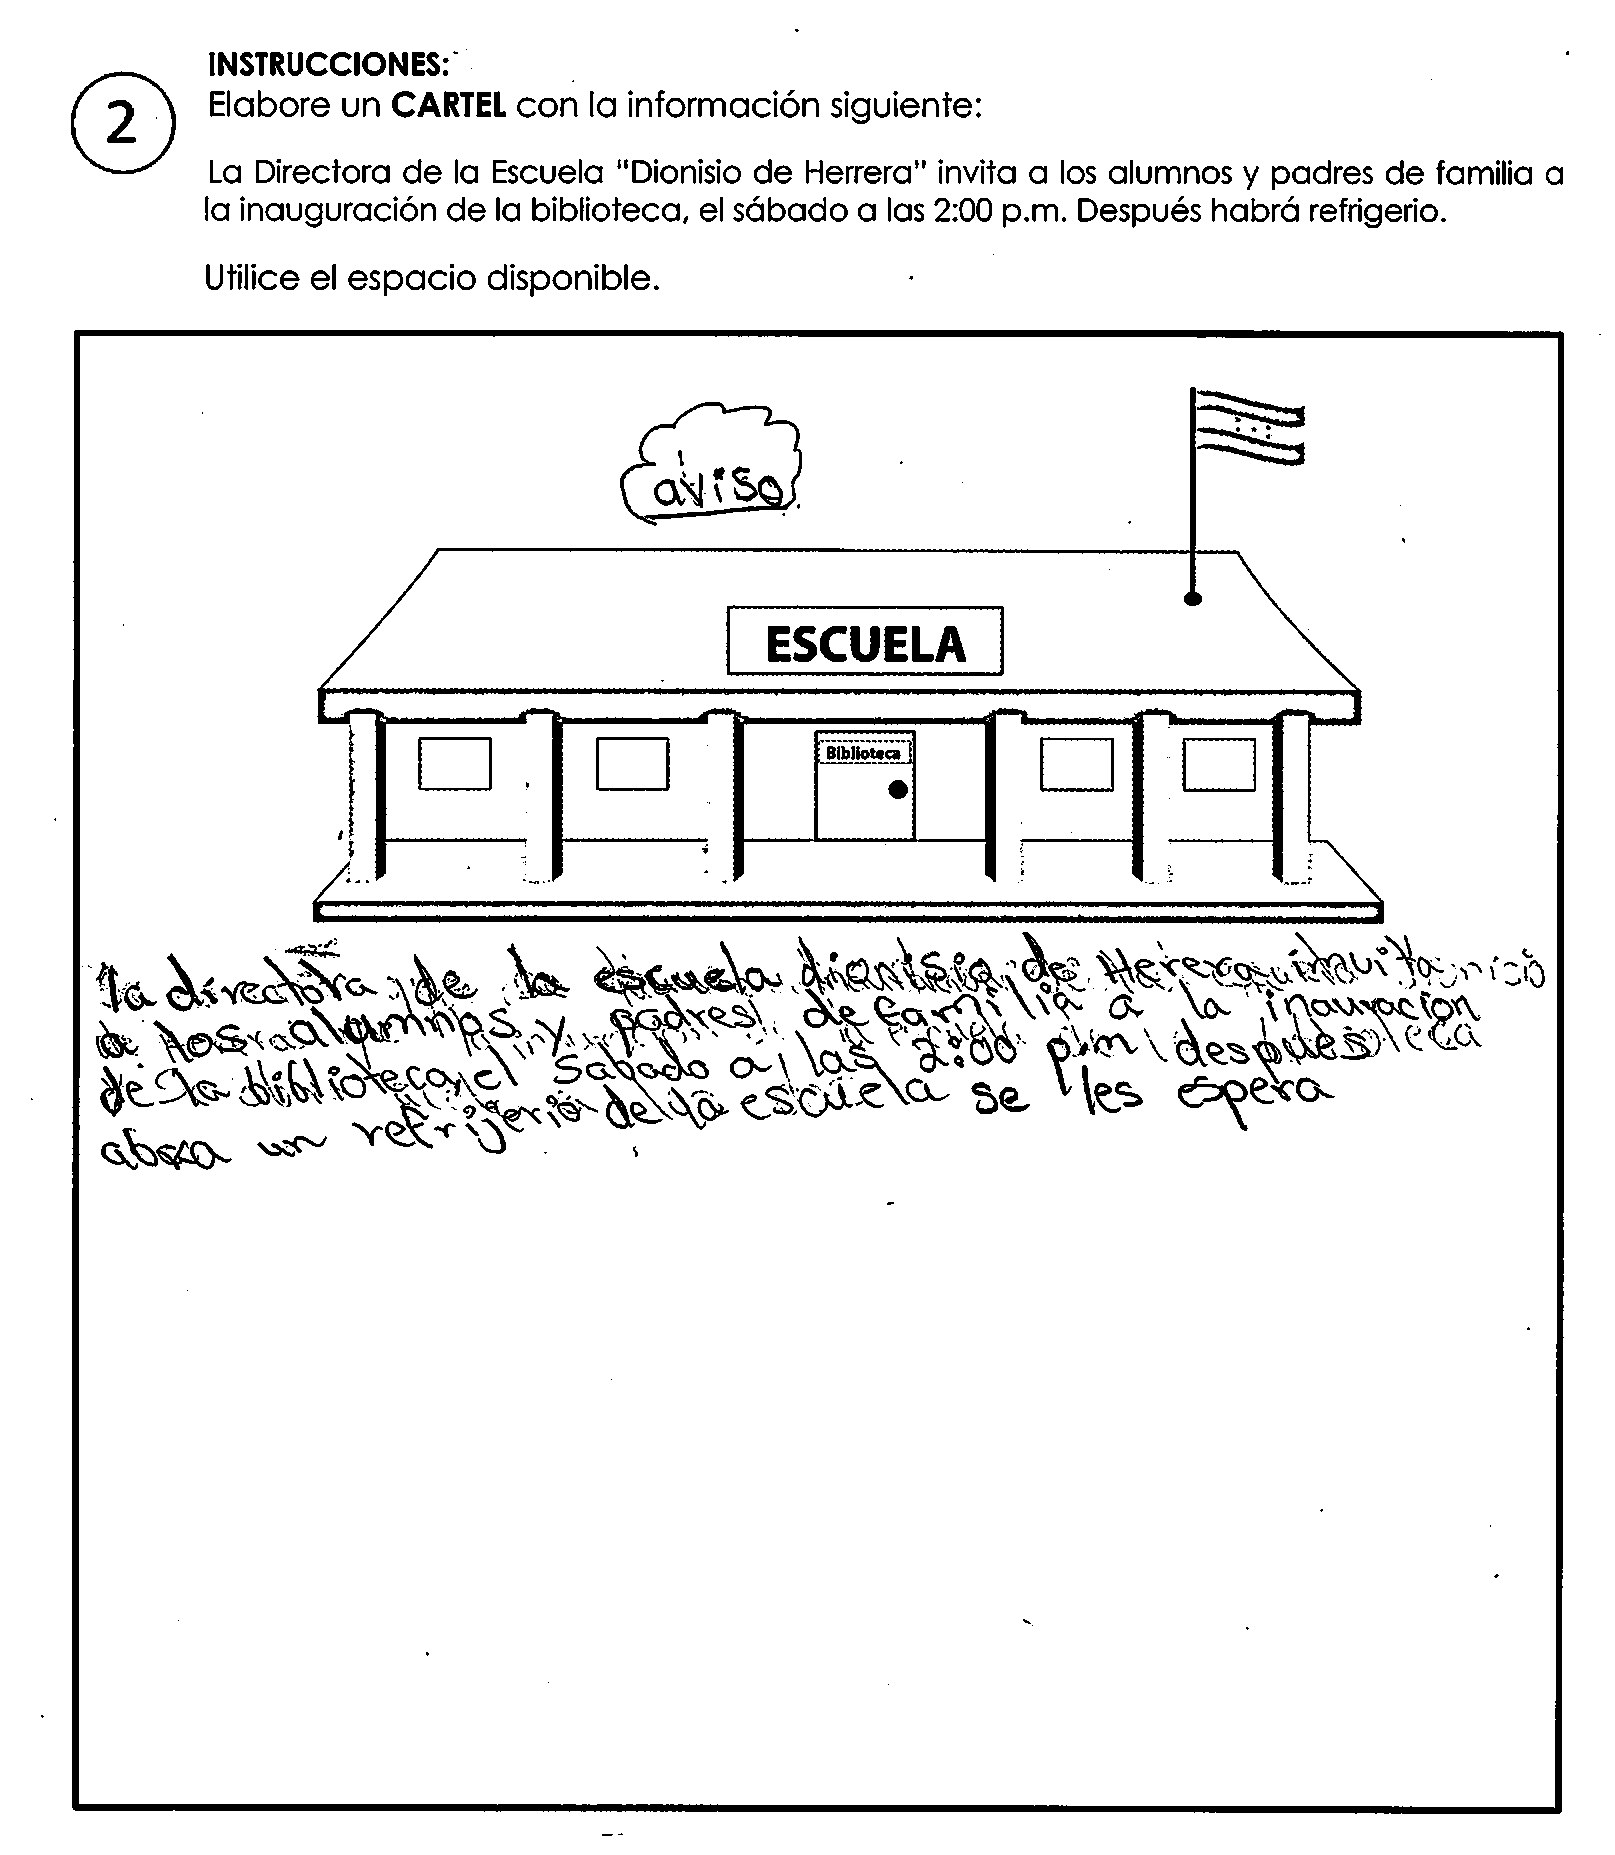 INSTRUCCIONES:
2
Elabore un CARTEL con la información siguiente:
La Directora de la Escuela "Dionisio de Herrera" invita a los alumnos y padres de familia a
la inauguración de la biblioteca, el sábado a las 2:00 p.m. Después habrá refrigerio.
Utilice el espacio disponible.
aviso
ESCUELA
Biblioteca
la directora de la escuela dionisio de Herera invita
a los alumnos y padres de familia a la inauracion
de la biblioteca el sabado a las 2:00 p.m despues
abra un refrijerio de la escuela se les espera